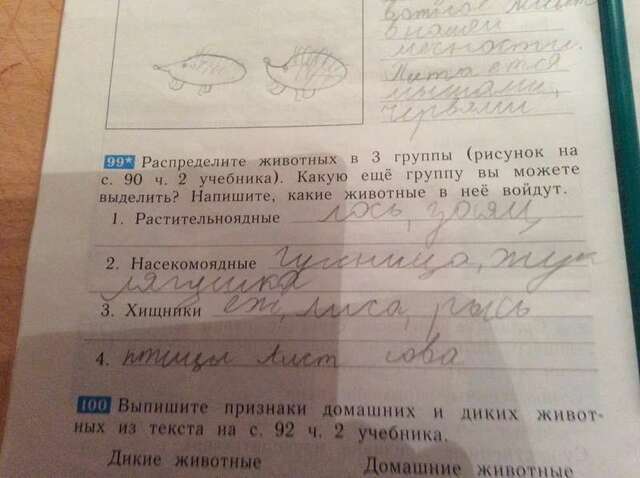 в нашей
местности.
Питается
мышами,
червями
99* Распределите животных в 3 группы (рисунок на
с. 90 ч. 2 учебника). Какую ещё группу вы можете
выделить? Напишите, какие животные в неё войдут.
1. Растительноядные лось, заяц
2. Насекомоядные гусеница, жук
лягушка
3. Хищники ёж, лиса, рысь
4. птицы аист сова
100 Выпишите признаки домашних и диких живот-
ных из текста на с. 92 ч. 2 учебника.
Дикие животные Домашние животные